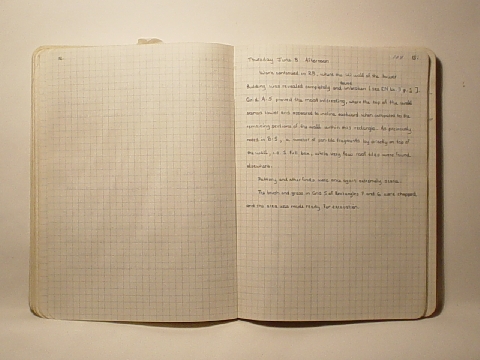 Thursday June 8. Afternoon
Work continued in R9, where the wall of the
Building was revealed completely and
Grid A-5 proved the most interesting, where the top of the wall
seemed lower and appeared to incline eastward when compared to the
remaining sections of the wall within this rectangle. As previously
noted in B-5, a number of pan tile fragments lay directly on top of
the wall, i.e. 1 full box, while very few roof tiles were found
elsewhere.
Pottery and other finds were once again extremely scarce.
The brush and grass in Grid 5 of Rectangles 7 and 6 were chopped
and the area was made ready for excavation.